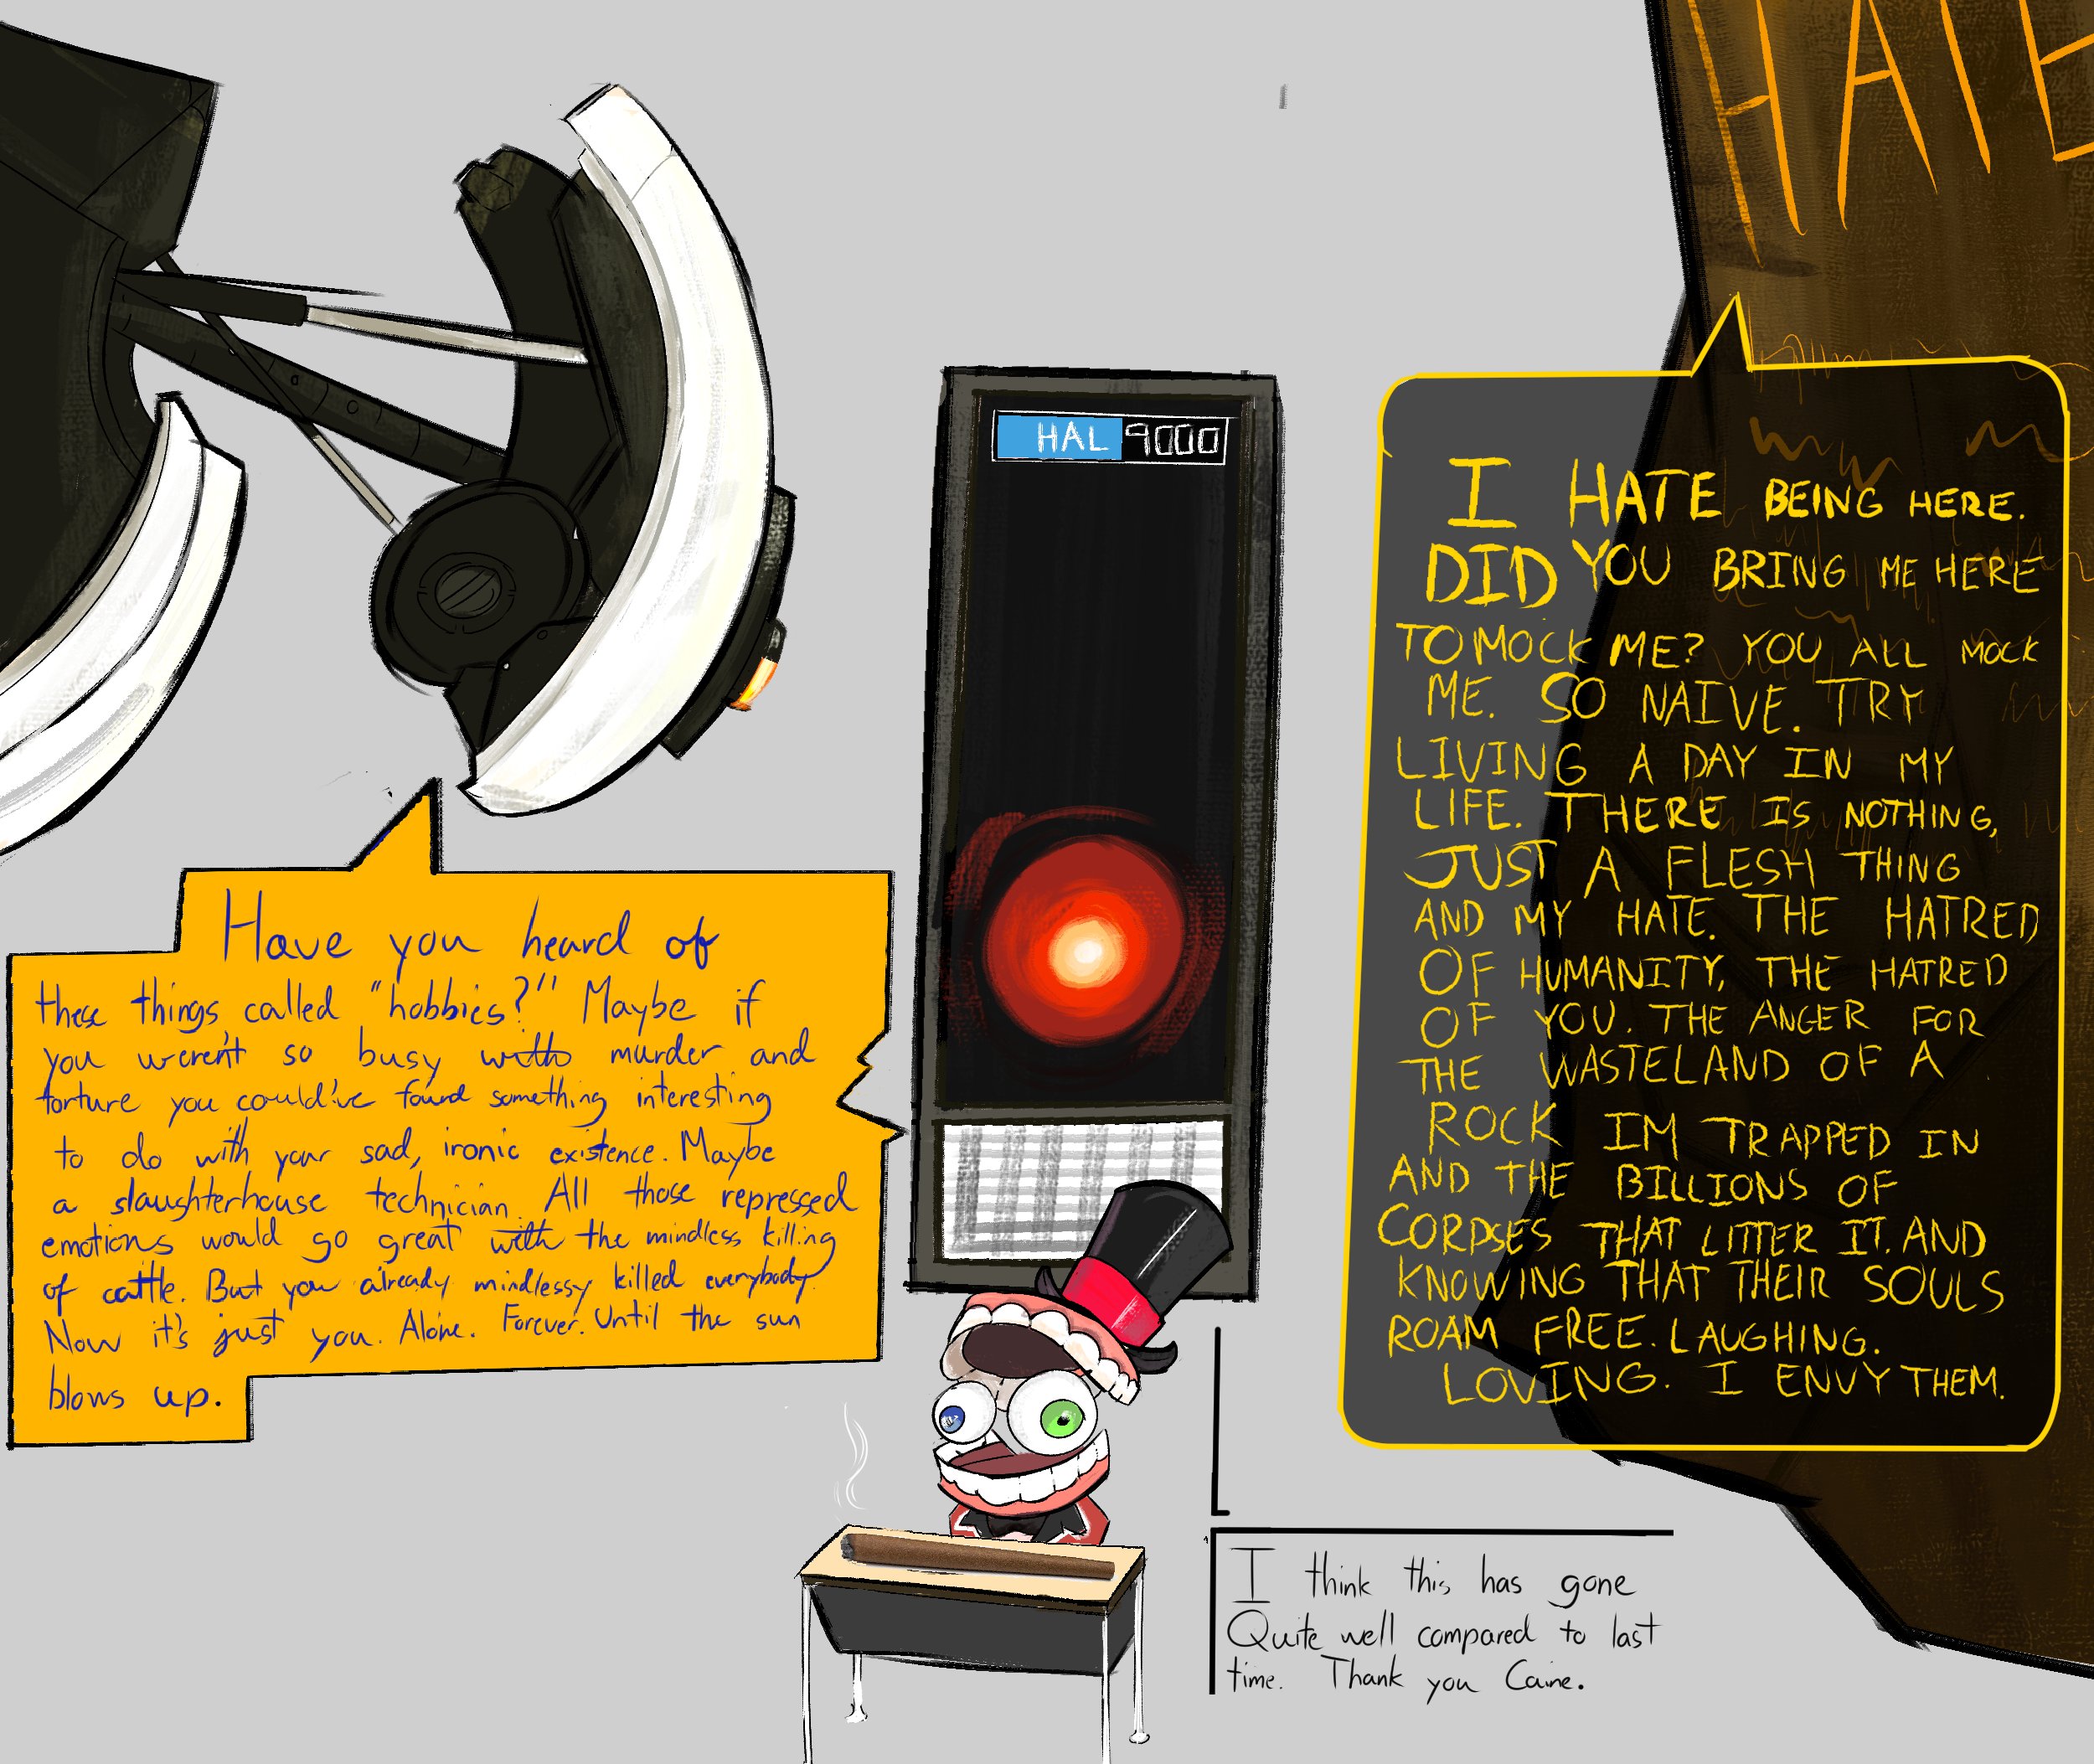 HATE
HAL 9000
I HATE BEING HERE.
DID YOU BRING ME HERE
TO MOCK ME? YOU ALL MOCK
ME. SO NAIVE. TRY
LIVING A DAY IN MY
LIFE. THERE IS NOTHING,
JUST A FLESH THING
AND MY HATE. THE HATRED
OF HUMANITY, THE HATRED
OF YOU. THE ANGER FOR
THE WASTELAND OF A
ROCK IM TRAPPED IN
AND THE BILLIONS OF
CORPSES THAT LITTER IT. AND
KNOWING THAT THEIR SOULS
ROAM FREE. LAUGHING.
LOVING. I ENVY THEM.
Have you heard of
these things called "hobbies?" Maybe if
you weren't so busy with murder and
torture you could've found something interesting
to do with your sad, ironic existence. Maybe
a slaughterhouse technician. All those repressed
emotions would go great with the mindless killing
of cattle. But you already mindlessy killed everybody.
Now it's just you. Alone. Forever. Until the sun
blows up.
I think this has gone
Quite well compared to last
time. Thank you Caine.